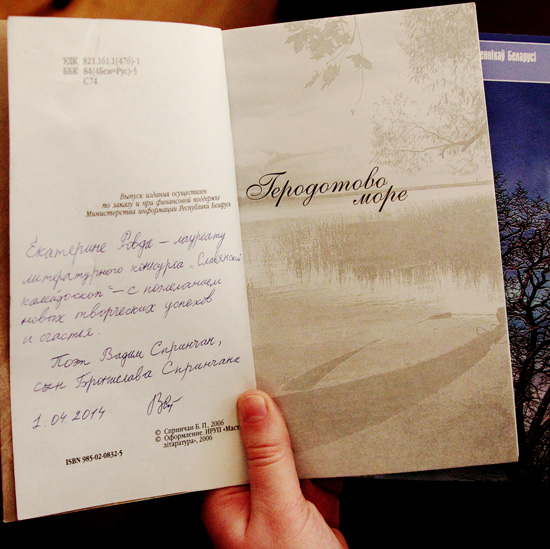 УДК 821.161.1(476)-1
ББК 84(4Беи=Рус)-5
С74
Выпуск издания осуществлен
по заказу и при финансовой поддержке
Министерства информации Республики Беларусь
Екатерине Ровда – лауреату
литературного конкурса „Славянский
калейдоскоп“ – с пожеланием
новых творческих успехов
и счастья.
Поэт Вадим Спринчан,
сын Бронислава Спринчана
1.04.2014
© Спринчан Б. П., 2006
© Оформление. ИРУП «Маст
літаратура», 2006
ISBN 985-02-0832-5
Геродотово
море
Беларусі